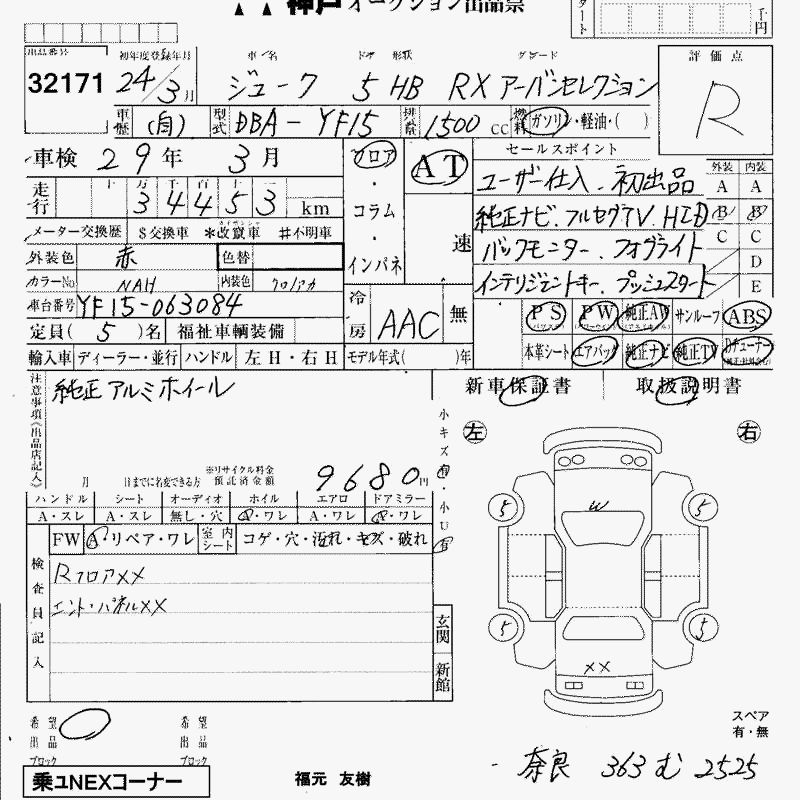 神戸オークション出品票
千円
出品番号 初年度登録年月 車名 ドア 形状 グレード 評価点
32171 24/3月 ジューク 5 HB RX アーバンセレクション R
車歴 (自) 型式 DBA-YF15 排気量 1500cc 燃料 ガソリン・軽油・( )
車検 29年 3月 フロア・コラム・インパネ AT 速
セールスポイント 外装 内装
走行 十万千百十一 34453 km
ユーザー仕入、初出品 A A
純正ナビ、フルセグTV、HID B B
バックモニター、フォグライト C C
D
インテリジェントキー、プッシュスタート E
メーター交換歴 $交換車 *改竄車 #不明車
外装色 赤 色替
カラーNo NAH 内装色 クロ/アカ
車台番号 YF15-063084
冷房 AAC 無
PS PW 純正AW サンルーフ ABS
定員( 5 )名 福祉車輌装備
本革シート エアバッグ 純正ナビ 純正TV
輸入車 ディーラー・並行 ハンドル 左H・右H モデル年式( )年
新車保証書 取扱説明書
注意事項《出品店記入》
純正アルミホイール
月 日までに名変できる方 ※リサイクル料金預託済金額 9680円
小キズ有・小U有
左 右
ハンドル シート オーディオ ホイル エアロ ドアミラー
A・スレ A・スレ 無し・穴 A・ワレ A・ワレ A・ワレ
FW A・リペア・ワレ 室内シート コゲ・穴・汚れ・キズ・破れ
検査員記入
RフロアXX
エンド・パネルXX
玄関 新館
5 5
W
5 5
XX
希望出品ブロック 希望出品ブロック
スペア
有・無
乗ュNEXコーナー 福元 友樹
奈良 363 む 2525